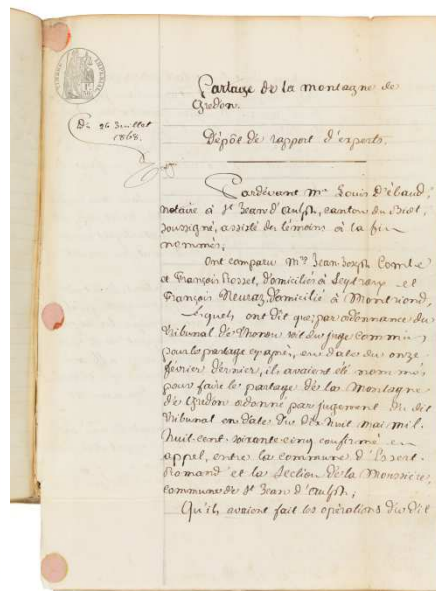 Partage de la montagne de
Gredon.
Du 26 Juillet
1868.
Dépôt de rapport d'experts.
Pardévant Me Louis Débaud,
notaire à St Jean d'Aulph, canton du Biot,
soussigné, assisté des témoins à la fin
nommés,
Ont comparu Mrs Jean Joseph Comte
et François Rosset, domiciliés à Seytroux et
François Neuraz, domicilié à Montriond,
Lesquels ont dit que par ordonnance du
Tribunal de Thonon soit du juge commis
pour le partage cy après, en date du onze
février dernier, ils avaient été nommés
pour faire le partage de la Montagne
de Gredon ordonné par jugement du dit
Tribunal en date du dix huit mai mil
huit cent soixante cinq confirmé en
appel, entre la commune d'Essert-
Romand et la Section de la Moussière,
commune de St Jean d'Aulph;
Qu'ils avaient fait les opérations du dit